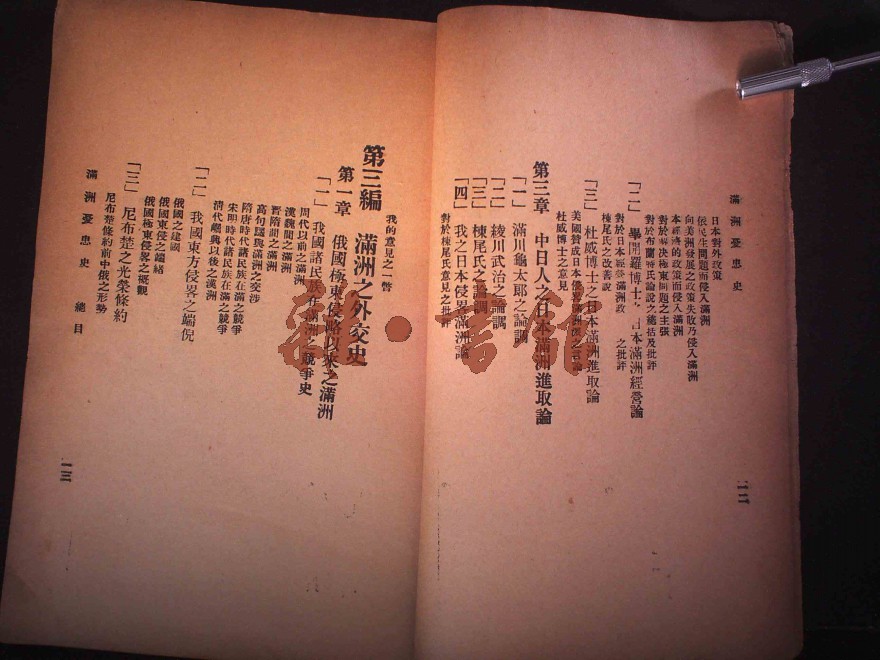 滿洲憂患史
日本對外政策
依民生問題而侵入滿洲
向美洲發展之政策失敗乃侵入滿洲
本經濟的政策而侵入滿洲
對於解決極東問題之主張
對於布蘭特氏論說之總括及批評
「二」 畢開羅博士 日本滿洲經營論
對於日本經營滿洲政 之批評
棟尾氏之改善說
「三」 杜威博士之日本滿洲進取論
美國贊成日本侵畧滿洲
杜威博士之意見
第三章 中日人之日本滿洲進取論
「一」 滿川龜太郎之論調
「二」 綾川武治之論調
「三」 棟尾氏之論調
「四」 我之日本侵畧滿洲論
對於棟尾氏意見之批評
二二
我的意見之一瞥
第三編 滿洲之外交史
第一章 俄國極東侵略以來之滿洲
「一」 我國諸民族在滿洲之競爭史
周代以前之滿洲
漢魏間之滿洲
晉隋間之滿洲
高句驪與滿洲之交涉
隋唐時代諸民族在滿之競爭
宋明時代諸民族在滿之競爭
清代崛興以後之滿洲
「二」 我國東方侵畧之端倪
俄國之建國
俄國東侵之端緒
俄國極東侵畧之概觀
「三」 尼布楚之光榮條約
尼布楚條約前中俄之形勢
滿洲憂患史 總目
二三